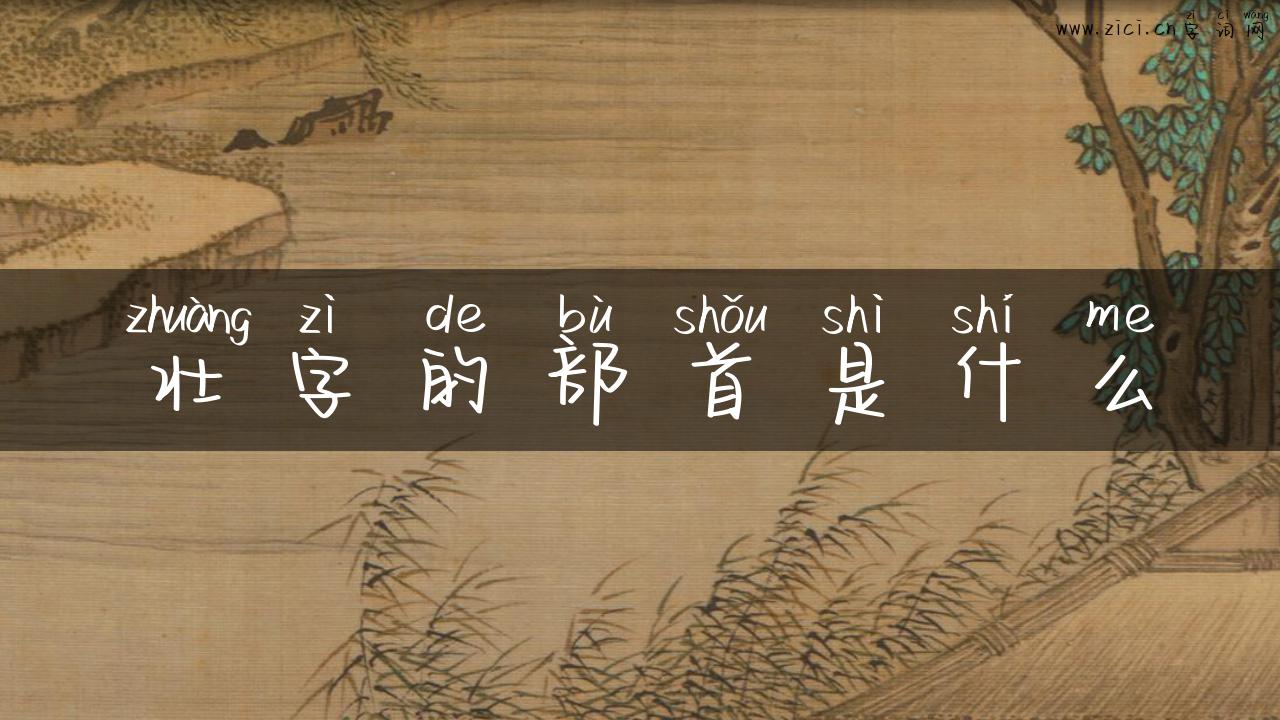 zì cí wǎng
www.zici.cn字词网
zhuàng zì de bù shǒu shì shí me
壮字的部首是什么